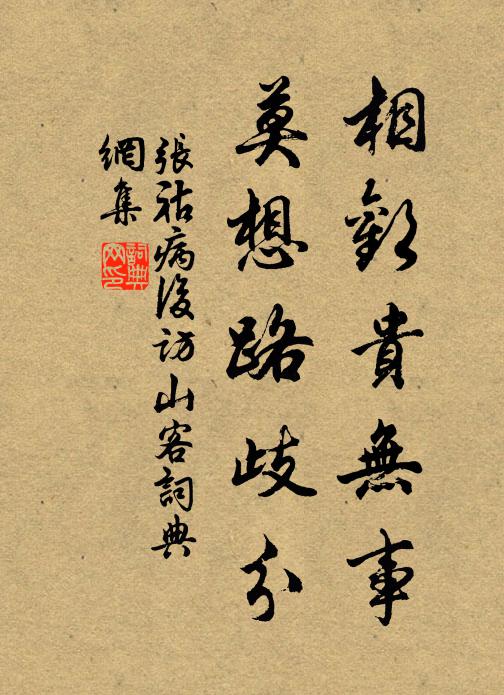 相歡貴無事
莫想路歧分
張祜病後訪山客詞典
網集
詞典
网印